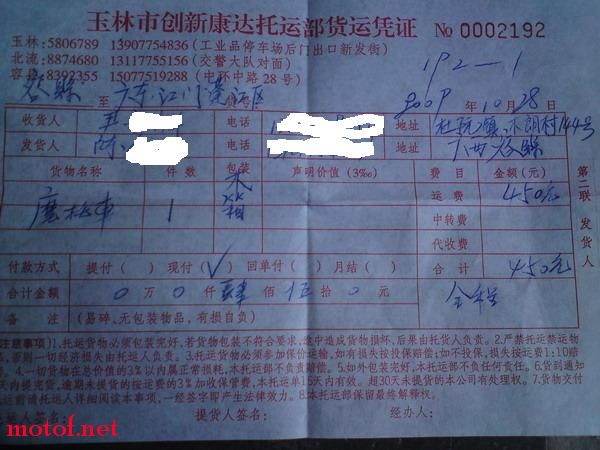 玉林市创新康达托运部货运凭证 No 0002192
玉林:5806789 13907754836(工业品停车场后门出口新发街)
北流:8874680 13117755156(交警大队对面)
容县:8392355 15077519288(中环中路28号)
1P2—1
容縣 至 广东江门蓬江区 2009年10月28日
收货人 电话 地址 杜阮镇 村144号
发货人 电话 地址 广西容縣
货物名称 件数 包装 声明价值(3‰) 费目 金额(元)
摩托車 1 木箱 运费 450元
中转费
代收费
付款方式 提付( ) 现付(√) 回单付( ) 月结( ) 合计 450元
合计金额 0万0仟肆佰伍拾0元
备注 (易碎、无包装物品,有损自负)
第二联 发货人
注意事项)1.托运货物必须包装完好,若货物包装不符合要求,途中造成货物损坏,后果由托人负责。2.严禁托禁运物
品,否则一切经济损失由托运人负责。3.托运货物必须参加保价运输,如有损失按投保赔偿;如不投保,损失按运费1:10赔
偿。4.一切货物在总价值的3%以内属正常损耗,本托运部不负责赔偿。5.如外包装完好,本托运部不负任何责任。6.货到通知
天内提完货,逾期未提货的按运费的3%加收保管费,本托运单15天内有效。超30天未提货的本公司有处理权。7.货物交付
运前请托运人详细阅读本事项,一经签字即产生法律效力。8.本托运部保留最终解释权。
运人签名: 提货人签名: 经办人:
motof.net